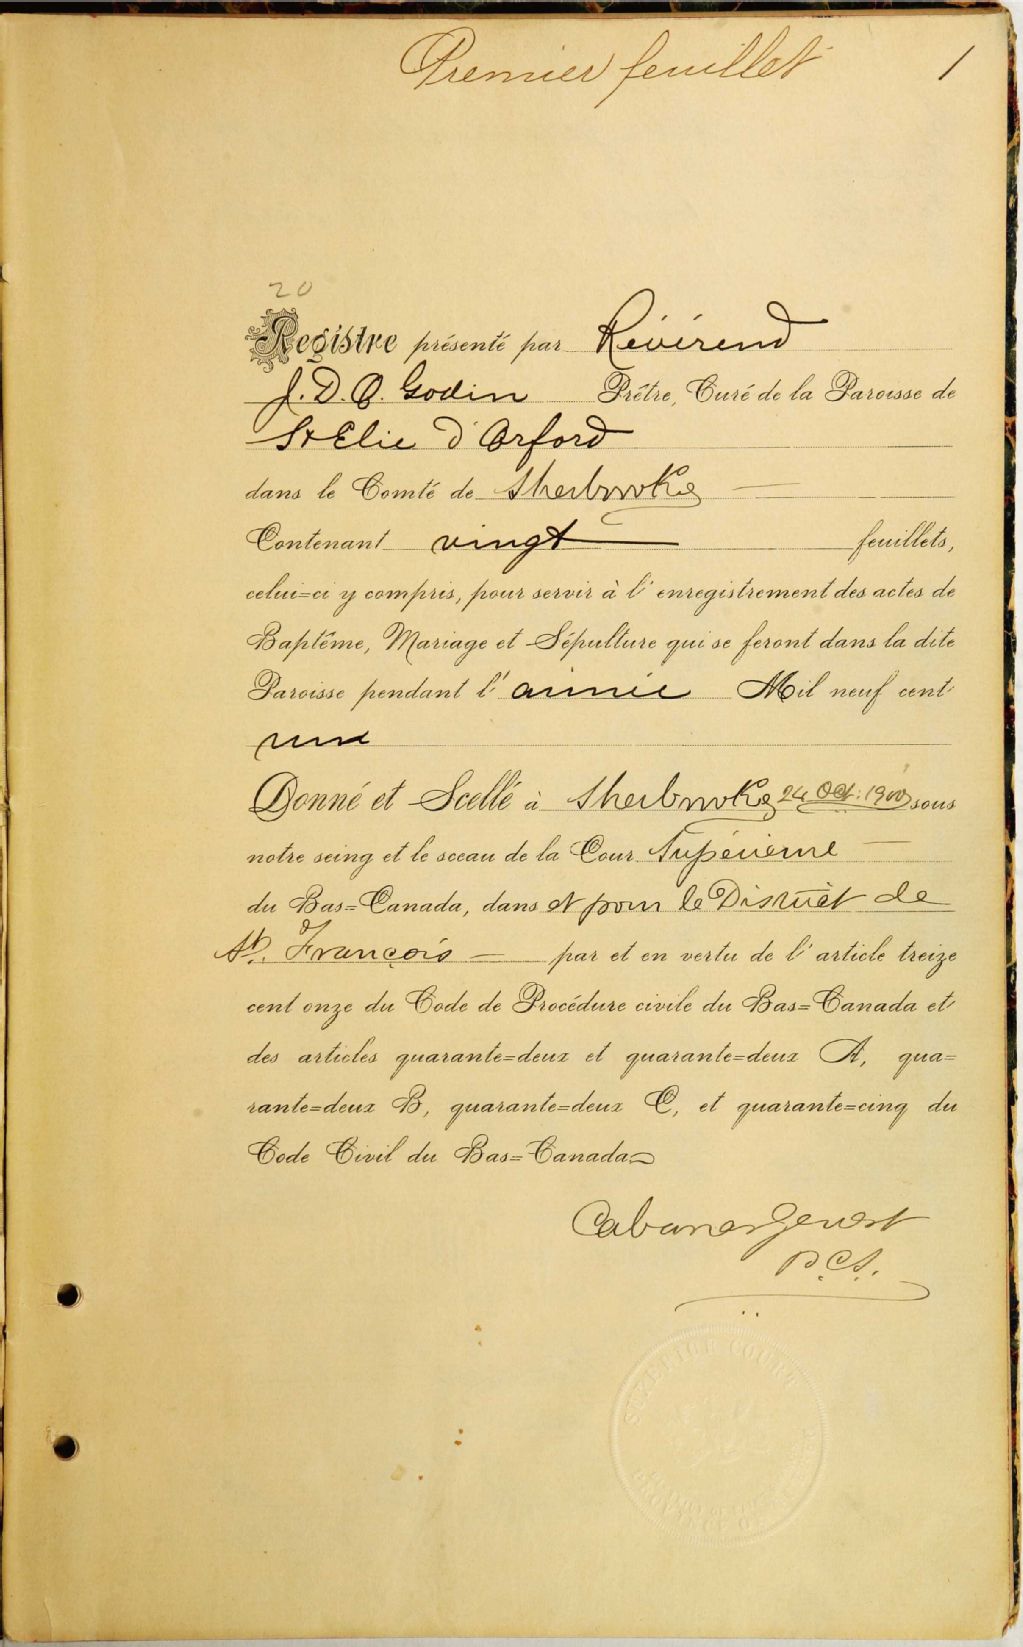 Premier feuillet 1
20
Registre présenté par Révérend
J. D. O. Godin Prêtre, Curé de la Paroisse de
St Elie d'Orford
dans le Comté de Sherbrooke
Contenant vingt feuillets,
celui=ci y compris, pour servir à l'enregistrement des actes de
Baptême, Mariage et Sépulture qui se feront dans la dite
Paroisse pendant l'année Mil neuf cent
une
Donné et Scellé à Sherbrooke 24 Oct. 1900 sous
notre seing et le sceau de la Cour Supérieure
du Bas=Canada, dans et pour le District de
St. François par et en vertu de l'article treize
cent onze du Code de Procédure civile du Bas=Canada et
des articles quarante=deux et quarante=deux A, qua=
rante=deux B, quarante=deux C, et quarante=cinq du
Code Civil du Bas=Canada
Cabana & Genest
P.C.S.
SUPERIOR COURT
PROVINCE OF